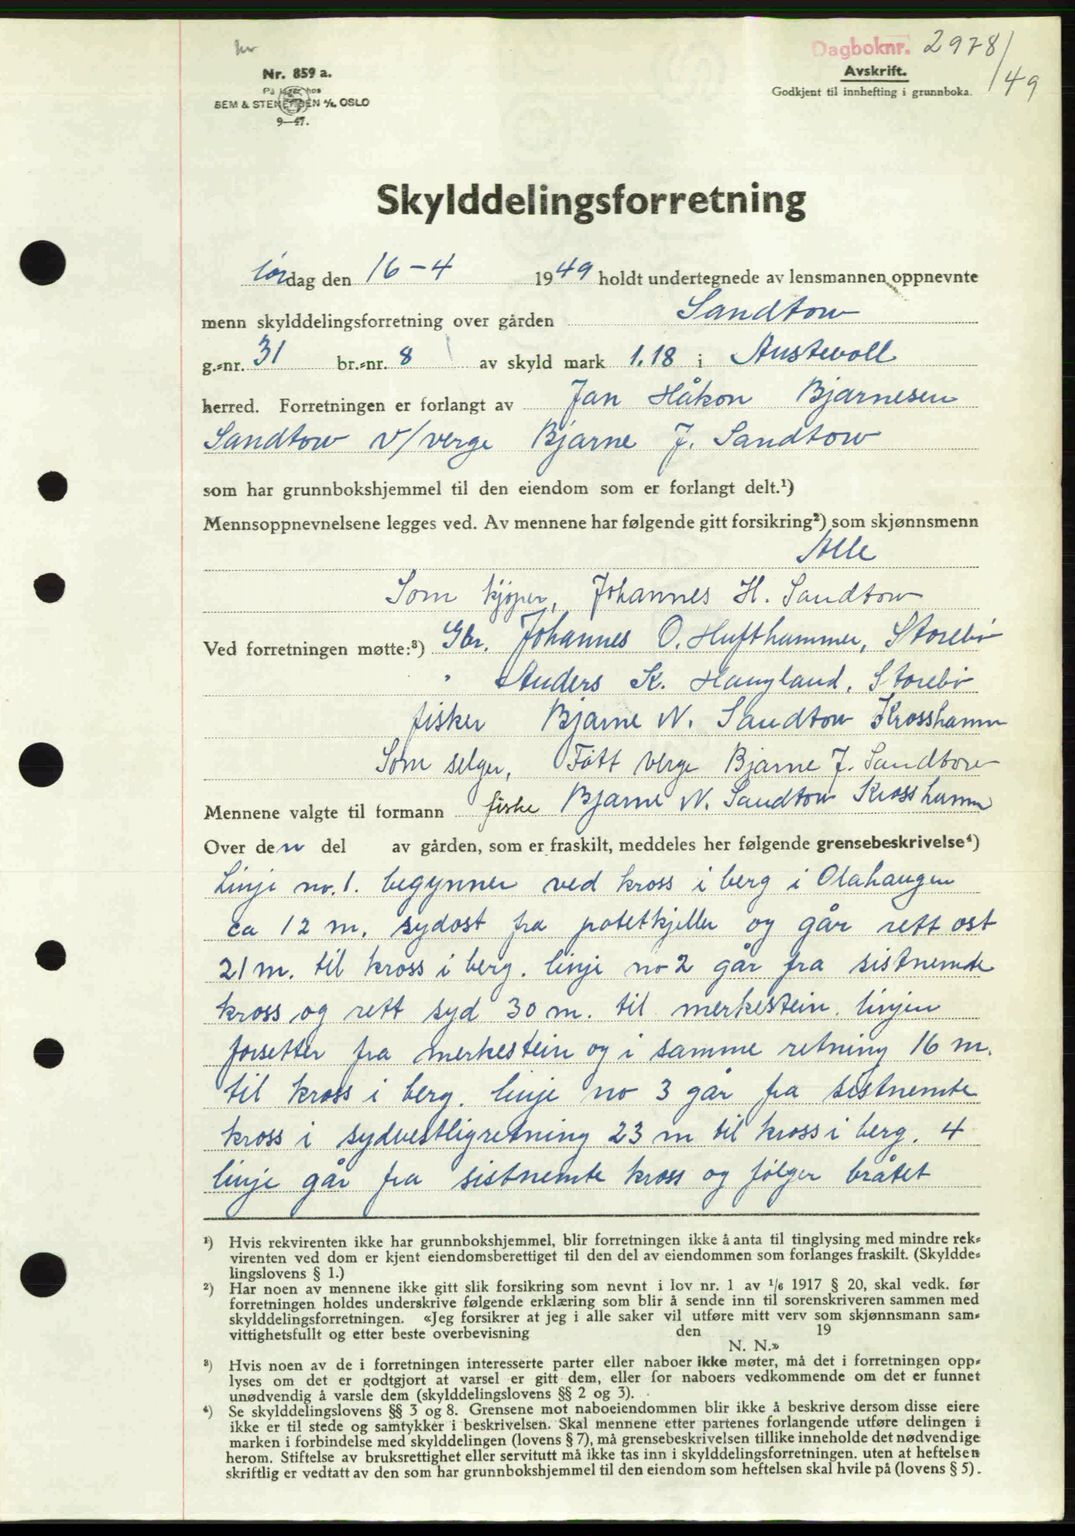 Dagboknr. 2978/49
Nr. 859 a.
På lager hos
BEM & STENERSEN A/S, OSLO
9—47.
Avskrift.
Godkjent til innhefting i grunnboka.
Skylddelingsforretning
lørdag den 16-4 1949 holdt undertegnede av lensmannen oppnevnte
menn skylddelingsforretning over gården Sandtow
g.-nr. 31 br.-nr. 8 av skyld mark 1.18 i Austevoll
herred. Forretningen er forlangt av Jan Håkon Bjarnesen
Sandtow v/verge Bjarne J. Sandtow
som har grunnbokshjemmel til den eiendom som er forlangt delt.¹)
Mennsoppnevnelsene legges ved. Av mennene har følgende gitt forsikring²) som skjønnsmenn
Alle
Som kjøper, Johannes H. Sandtow
Ved forretningen møtte:³) Gbr. Johannes O. Hufthammer, Storebø
" Anders K. Haugland, Storebø
fisker Bjarne N. Sandtow Krosshamn
Som selger, Fått verge Bjarne J. Sandtow
Mennene valgte til formann fiske Bjarne N. Sandtow Krosshamn
Over den del av gården, som er fraskilt, meddeles her følgende grensebeskrivelse⁴)
Linje no. 1. begynner ved kross i berg i Olahaugen
ca 12 m. sydost fra potetkjeller og går rett ost
21 m. til kross i berg. linje no 2 går fra sistnemde
kross og rett syd 30 m. til merkestein. linjen
forsetter fra merkestein og i samme retning 16 m.
til kross i berg. linje no 3 går fra sistnemte
kross i sydvestligretning 23 m til kross i berg. 4
linje går fra sistnemte kross og følger bråtet
¹) Hvis rekvirenten ikke har grunnbokshjemmel, blir forretningen ikke å anta til tinglysing med mindre rek-
virenten ved dom er kjent eiendomsberettiget til den del av eiendommen som forlanges fraskilt. (Skyldde-
lingslovens § 1.)
²) Har noen av mennene ikke gitt slik forsikring som nevnt i lov nr. 1 av ¹/₆ 1917 § 20, skal vedk. før
forretningen holdes underskrive følgende erklæring som blir å sende inn til sorenskriveren sammen med
skylddelingsforretningen. «Jeg forsikrer at jeg i alle saker vil utføre mitt verv som skjønnsmann sam-
vittighetsfullt og etter beste overbevisning den 19
N. N.»
³) Hvis noen av de i forretningen interesserte parter eller naboer ikke møter, må det i forretningen opp-
lyses om det er godtgjort at varsel er gitt dem, eller for naboers vedkommende om det er funnet
unødvendig å varsle dem (skylddelingslovens §§ 2 og 3).
⁴) Se skylddelingslovens §§ 3 og 8. Grensene mot naboeiendommen blir ikke å beskrive dersom disse eiere
ikke er til stede og samtykker i beskrivelsen. Skal mennene etter partenes forlangende utføre delingen i
marken i forbindelse med skylddelingen (lovens § 7), må grensebeskrivelsen tillike inneholde det nødvendige
herom. Stiftelse av bruksrettighet eller servitutt må ikke tas inn i skylddelingsforretningen, uten at heftelsen
skriftlig er vedtatt av den som har grunnbokshjemmel til den eiendom som heftelsen skal hvile på (lovens § 5).